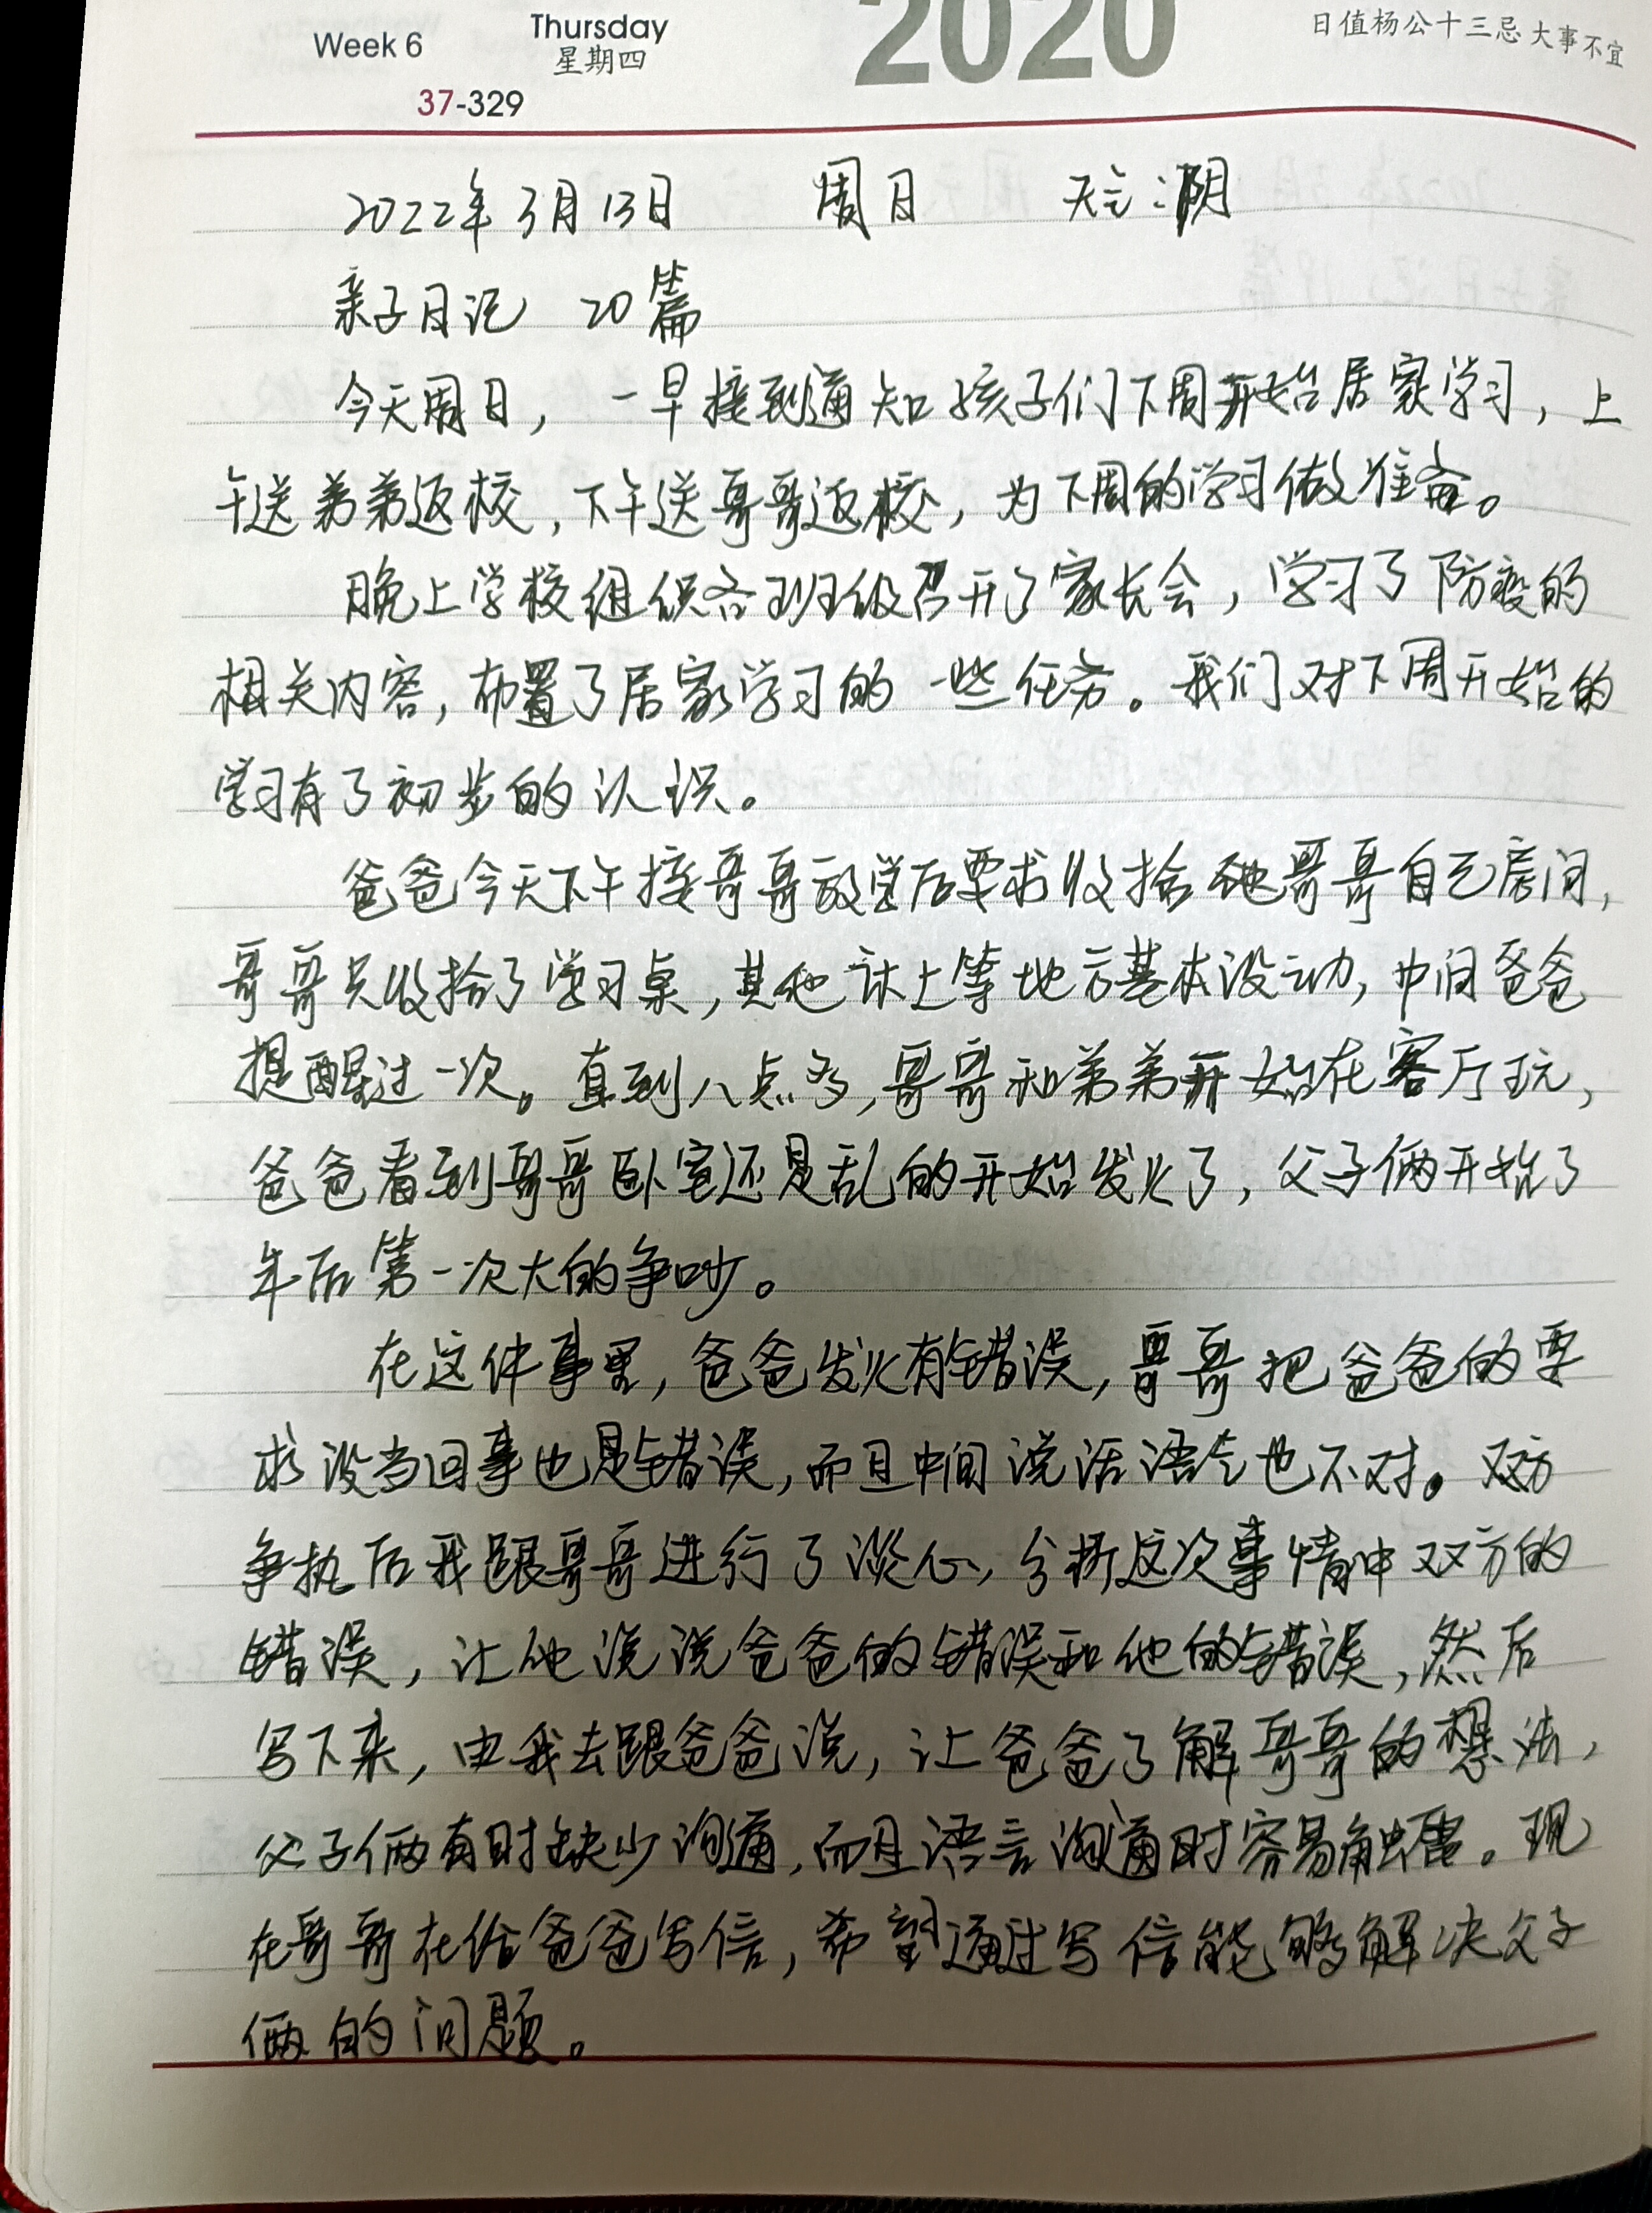 2020
Week 6
Thursday
星期四
37-329
日值杨公十三忌 大事不宜
2022年3月13日 周日 天气:阴
亲子日记 20篇
今天周日，一早接到通知孩子们下周开始居家学习，上
午送弟弟返校，下午送哥哥返校，为下周的学习做准备。
晚上学校组织各班级召开了家长会，学习了防疫的
相关内容，布置了居家学习的一些任务。我们对下周开始的
学习有了初步的认识。
爸爸今天下午接哥哥放学后要求收拾他哥哥自己房间，
哥哥只收拾了学习桌，其他床上等地方基本没动，中间爸爸
提醒过一次。直到八点多，哥哥和弟弟开始在客厅玩，
爸爸看到哥哥卧室还是乱的开始发火了，父子俩开始了
年后第一次大的争吵。
在这件事里，爸爸发火有错误，哥哥把爸爸的要
求没当回事也是错误，而且中间说话语气也不对。双方
争执后我跟哥哥进行了谈心，分析这次事情中双方的
错误，让他说说爸爸的错误和他的错误，然后
写下来，由我去跟爸爸说，让爸爸了解哥哥的想法，
父子俩有时缺少沟通，而且语言沟通时容易触雷。现
在哥哥在给爸爸写信，希望通过写信能够解决父子
俩的问题。